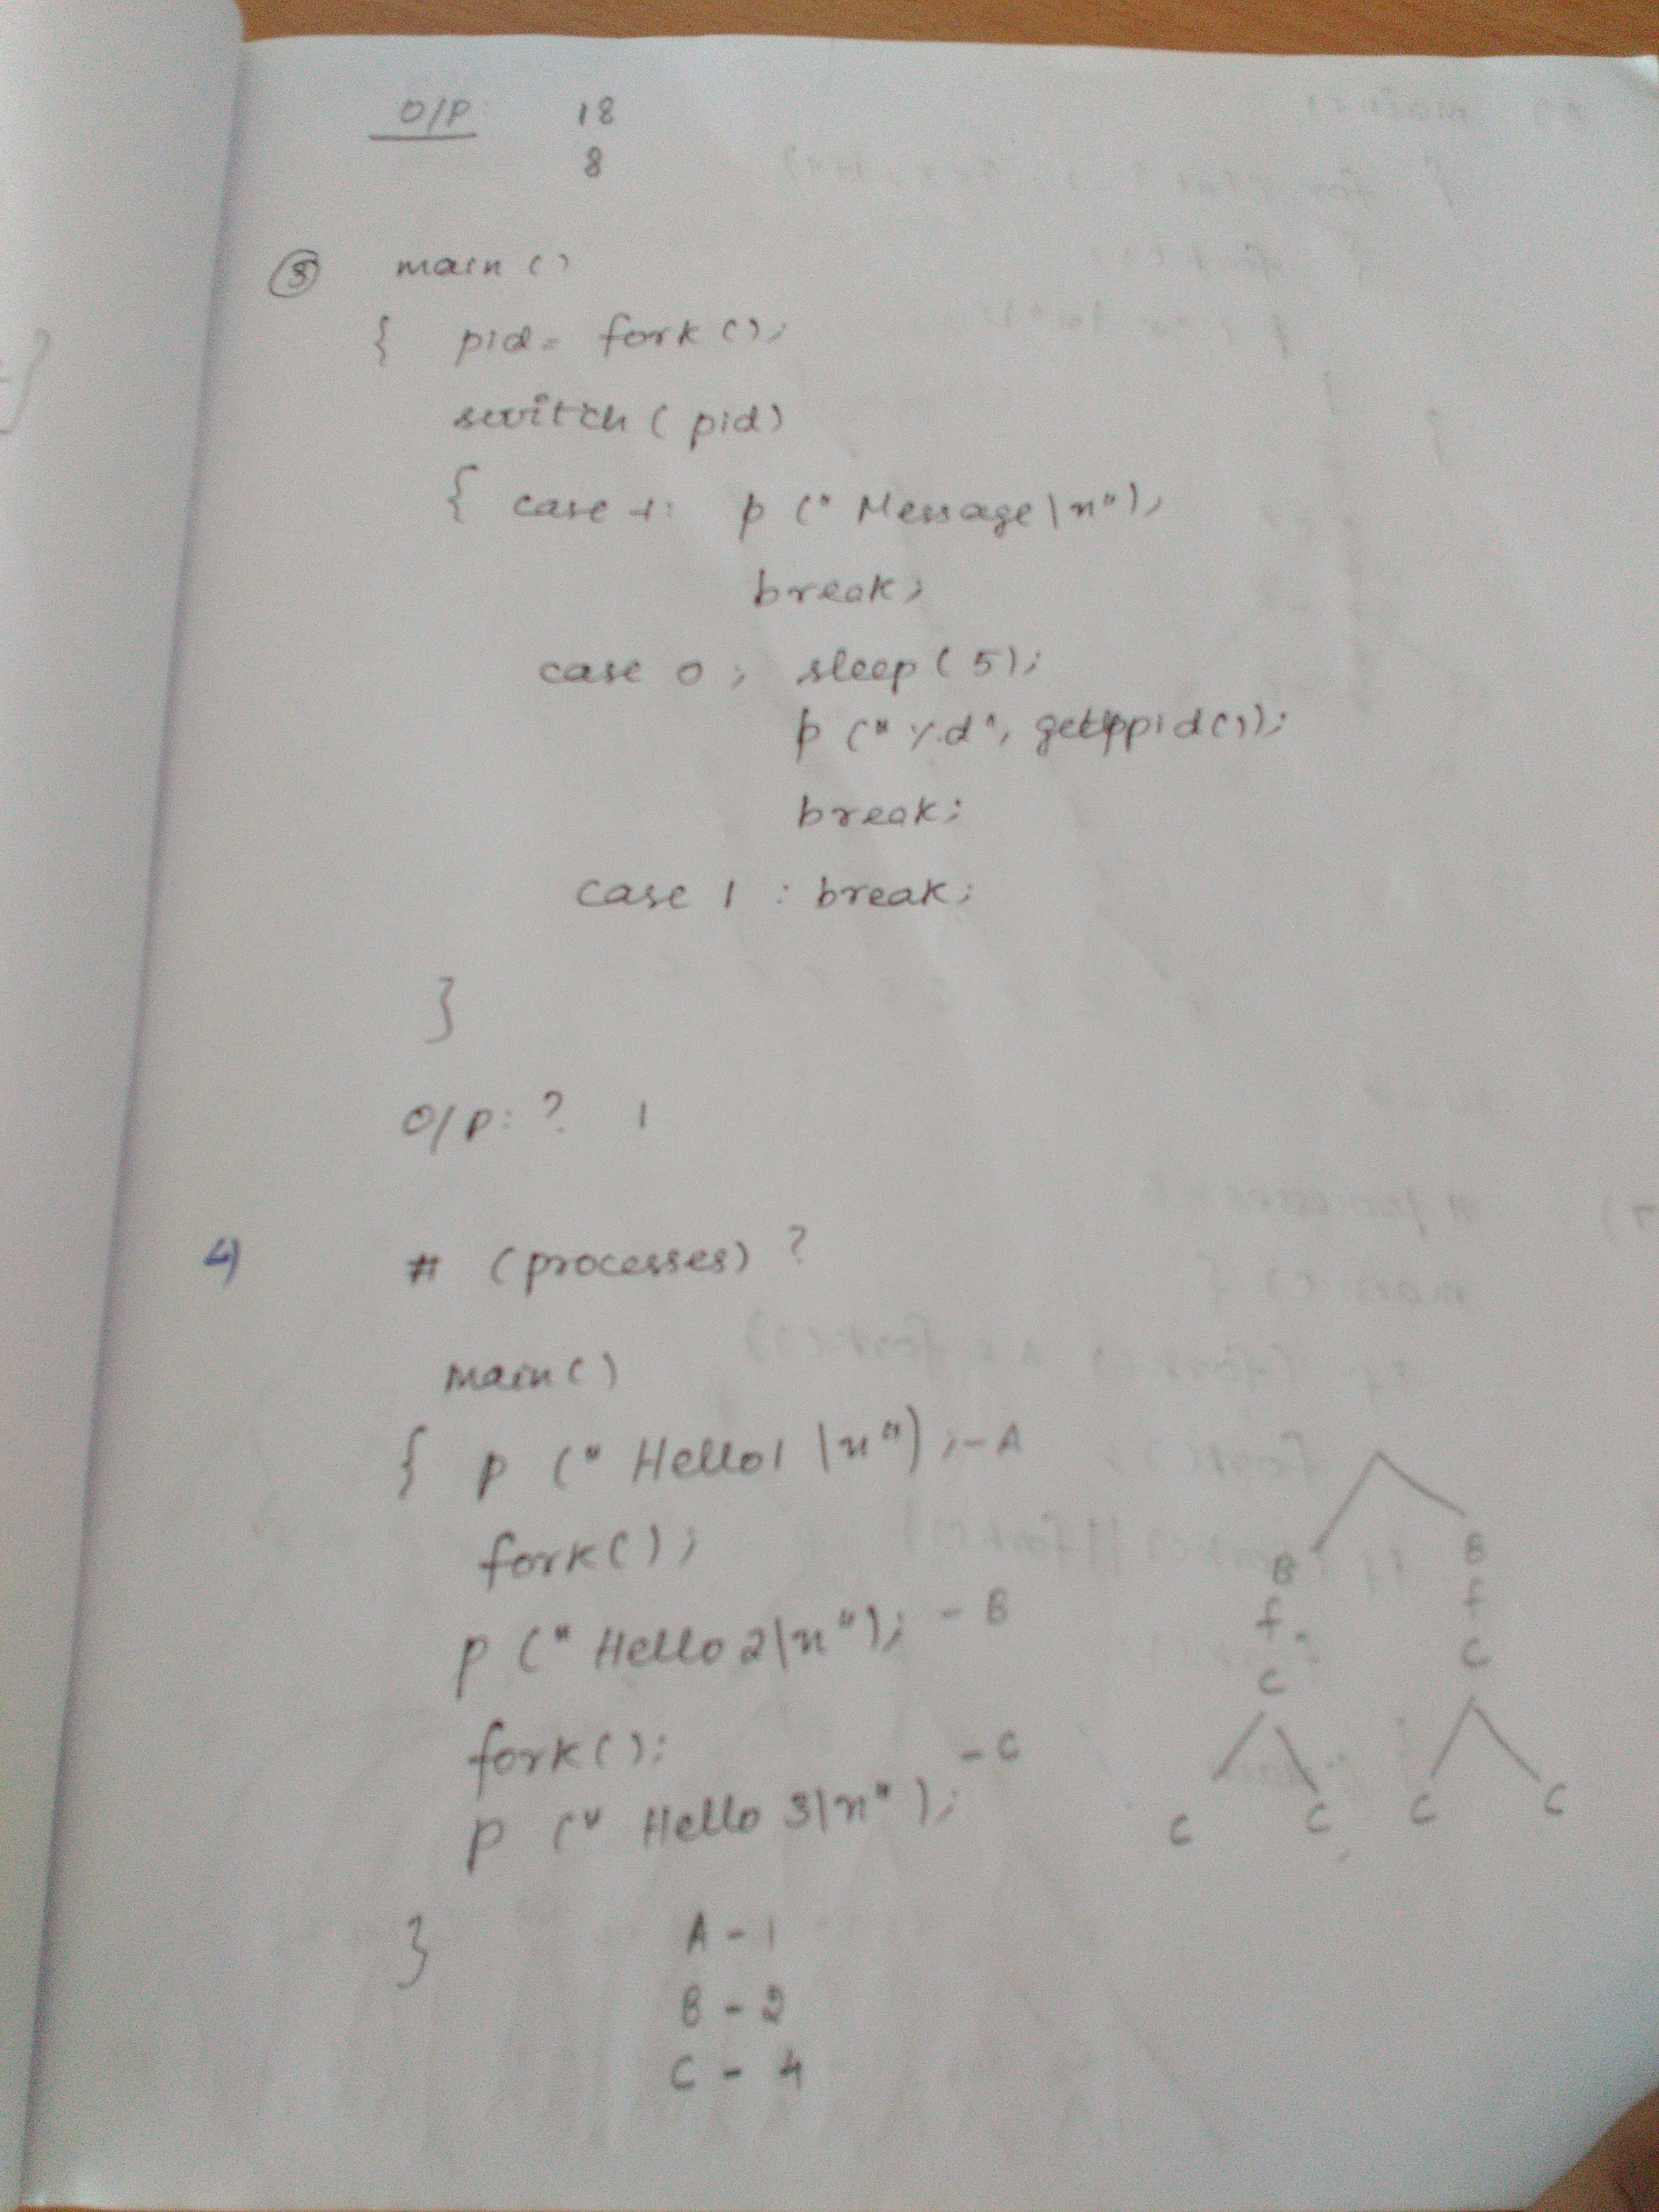 O/P 18
8
③ main ()
{ pid = fork ();
switch ( pid)
{ case -1: p (" Message \n");
break;
case 0 ; sleep ( 5);
p (" %d", getppid());
break;
case 1 : break;
}
O/P: ? 1
4) # (processes) ?
main()
{ p (" Hello1 \n") ; - A
fork();
p (" Hello 2\n"); - B
fork():
p (" Hello 3\n"); - C
}
B B
f f
C C
C C C C
A - 1
B - 2
C - 4